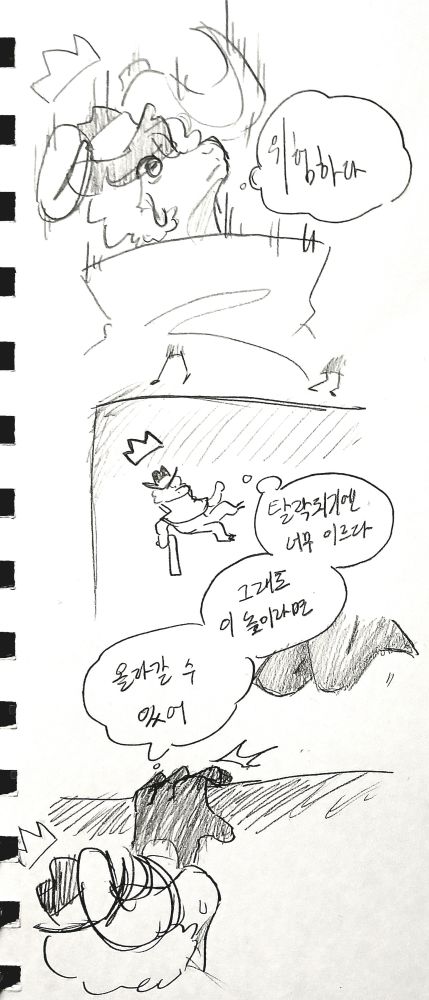 위험하다
탈락되기엔
너무 이르다
그래도
이 높이라면
올라갈 수
있어